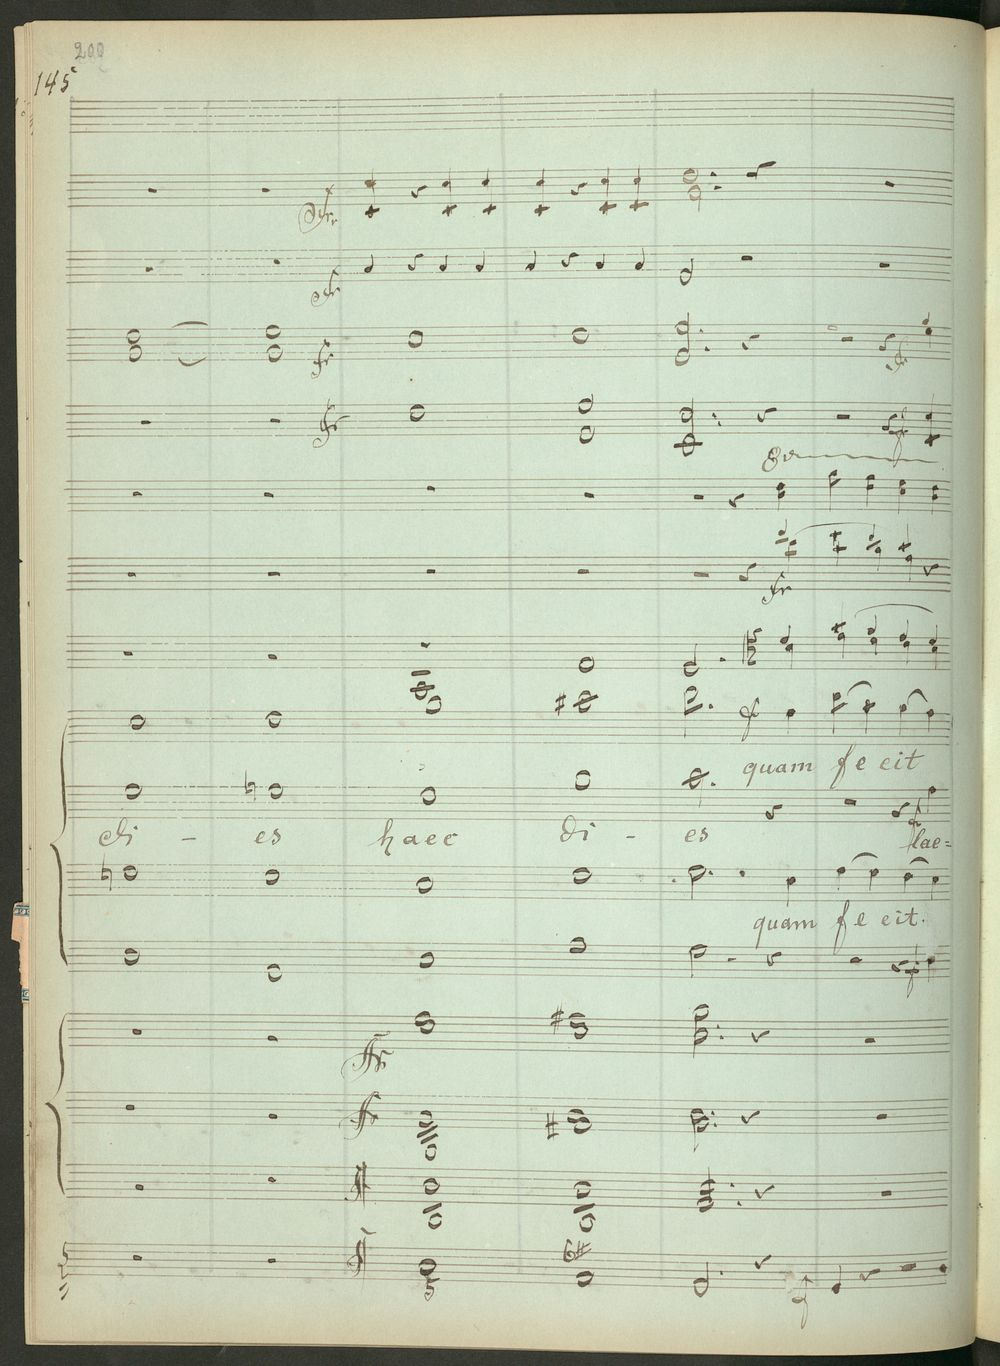 200
145
fr
fr
fr
fr
8va
fr
quam fe cit
di - es haec di - es
lae=
quam fe cit.
fr
fr
f
f
6#
5
f